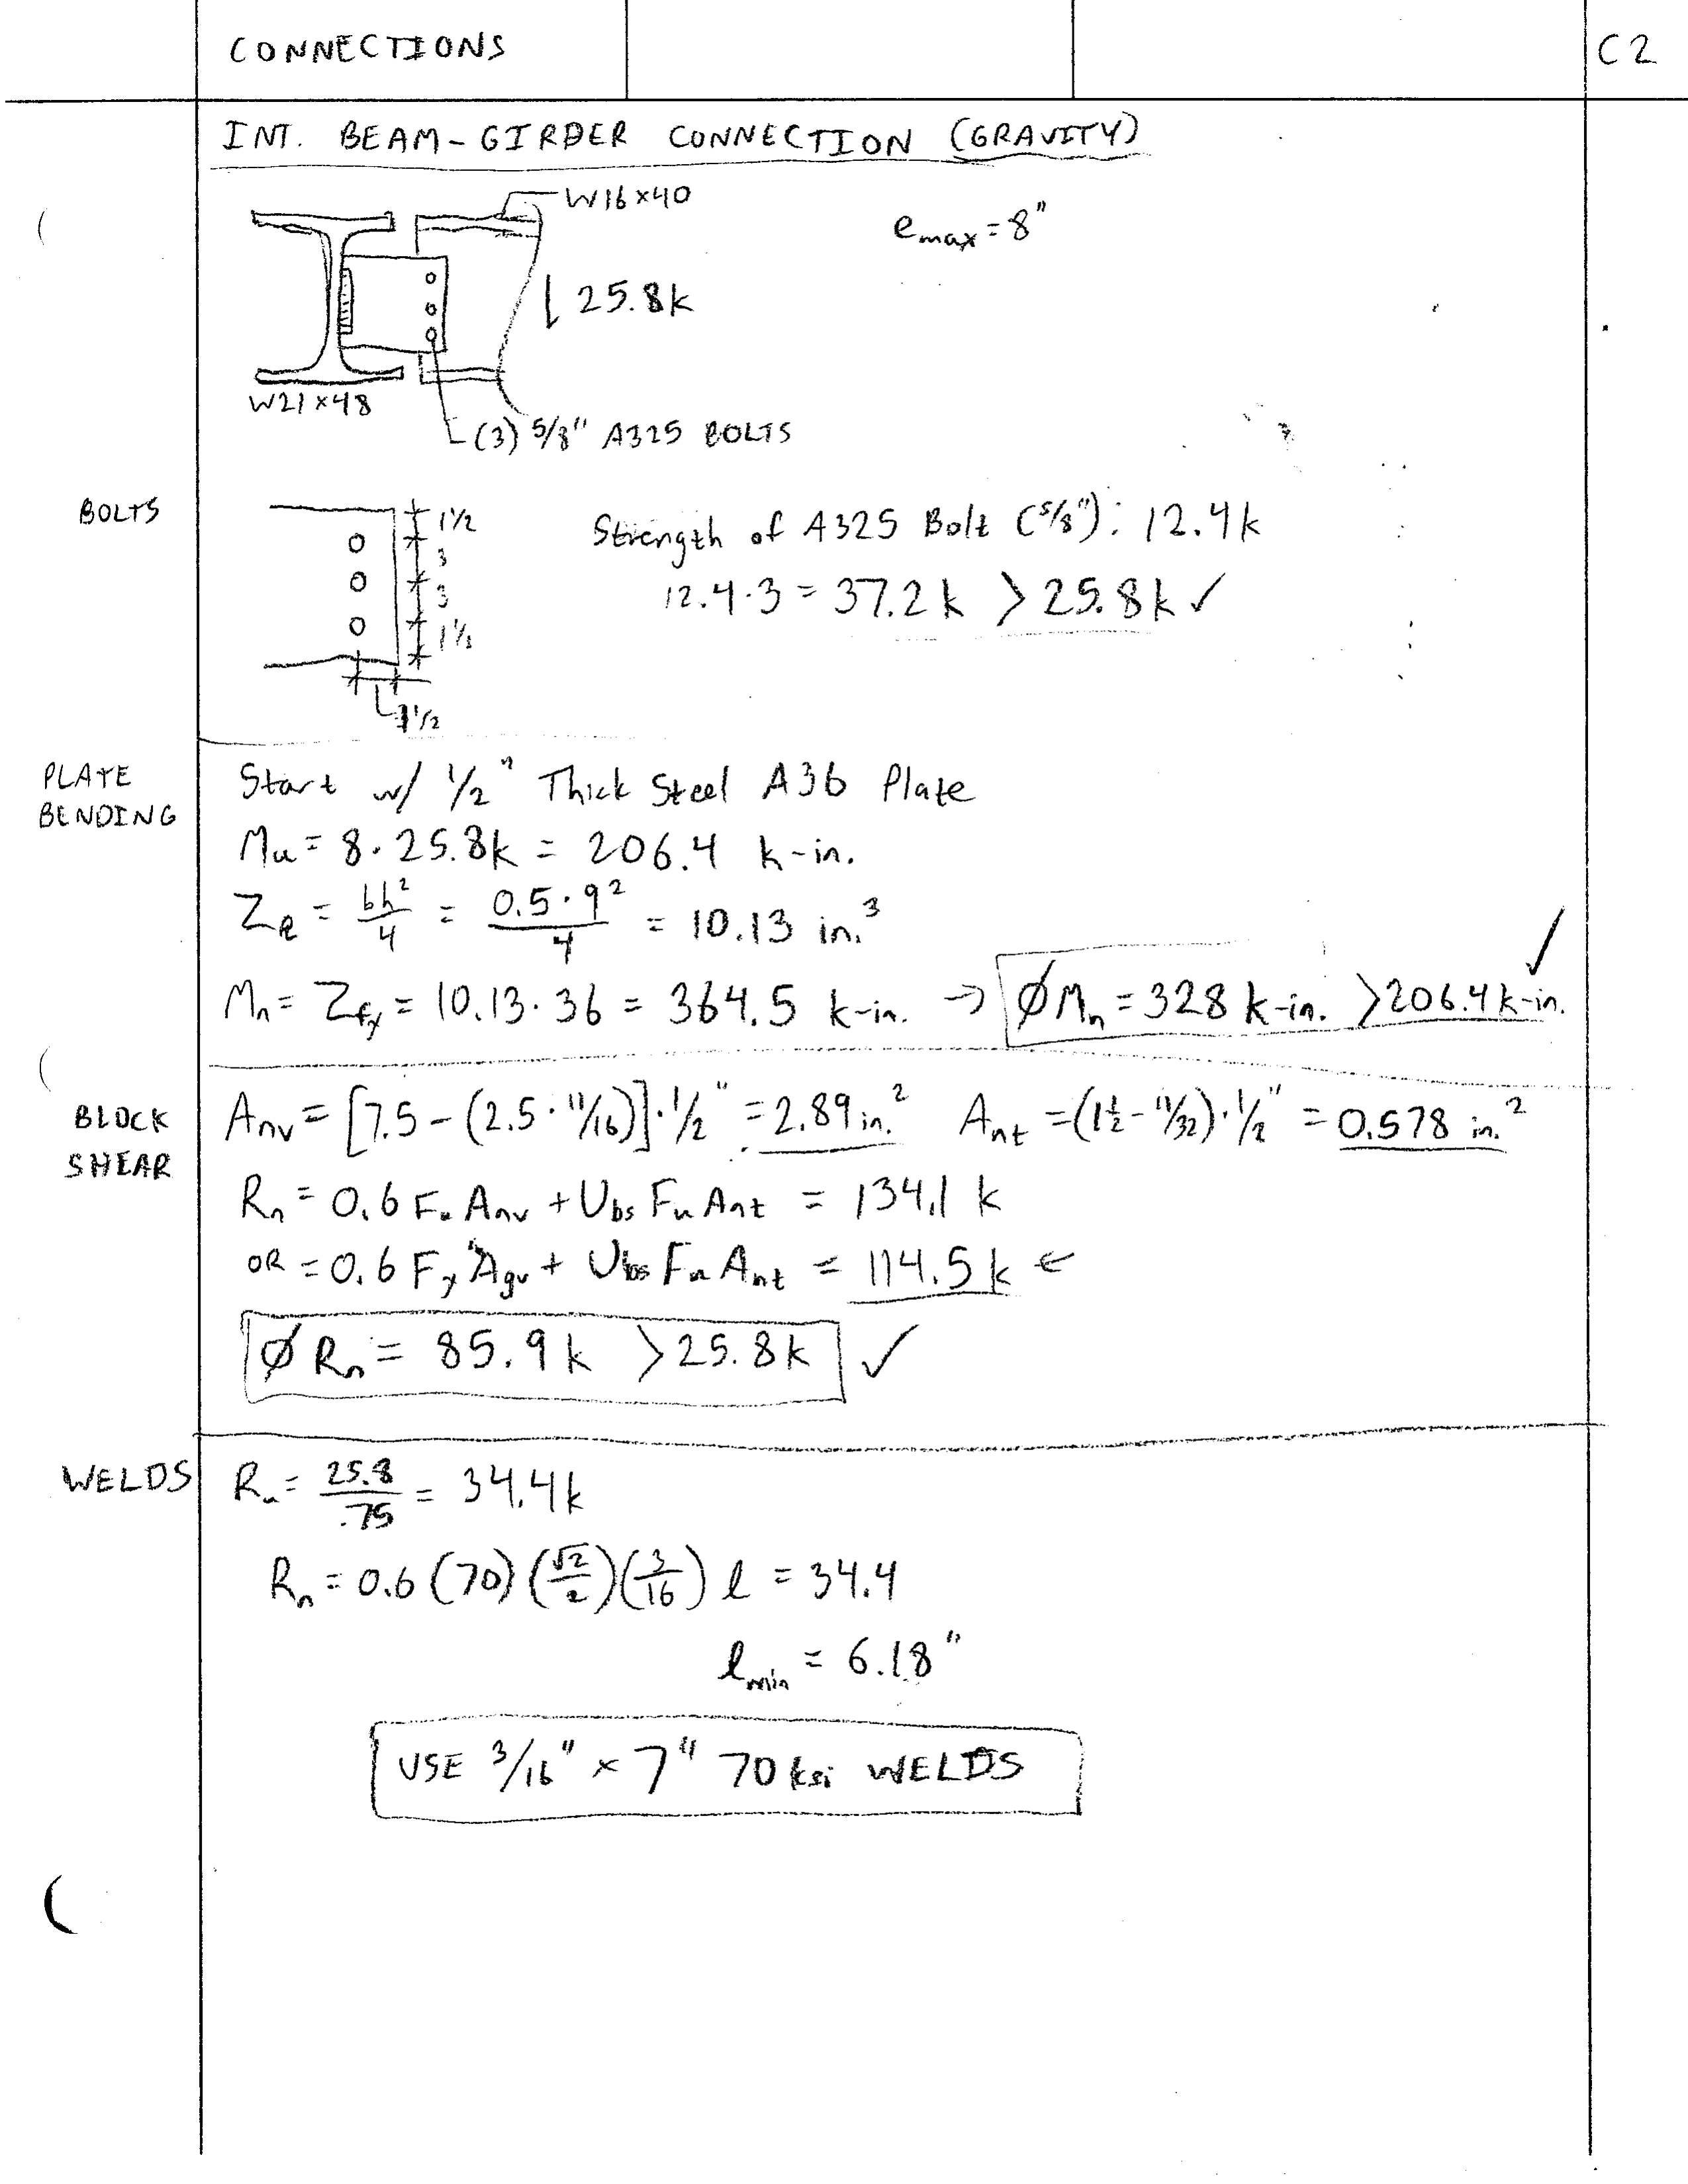 CONNECTIONS
C2
INT. BEAM-GIRDER CONNECTION (GRAVITY)
W16×40
e max = 8"
25.8k
W21×48
(3) 5/8" A325 BOLTS
BOLTS
1 1/2
3
3
1 1/2
1 1/2
Strength of A325 Bolt (5/8"): 12.4k
12.4·3 = 37.2k > 25.8k ✓
PLATE BENDING
Start w/ 1/2" Thick Steel A36 Plate
Mu = 8·25.8k = 206.4 k-in.
Z = bh²/4 = 0.5·9²/4 = 10.13 in.³
Mn = Zfy = 10.13·36 = 364.5 k-in. → ØMn = 328 k-in. > 206.4 k-in. ✓
BLOCK SHEAR
Anv = [7.5 - (2.5·11/16)]·1/2" = 2.89 in.² Ant = (1 1/2 - 11/32)·1/2" = 0.578 in.²
Rn = 0.6 Fu Anv + Ubs Fu Ant = 134.1 k
OR = 0.6 Fy Agv + Ubs Fu Ant = 114.5 k ←
Ø Rn = 85.9 k > 25.8 k ✓
WELDS
Ru = 25.8/.75 = 34.4k
Rn = 0.6 (70) (√2/2) (3/16) l = 34.4
l min = 6.18"
USE 3/16" × 7" 70 ksi WELDS